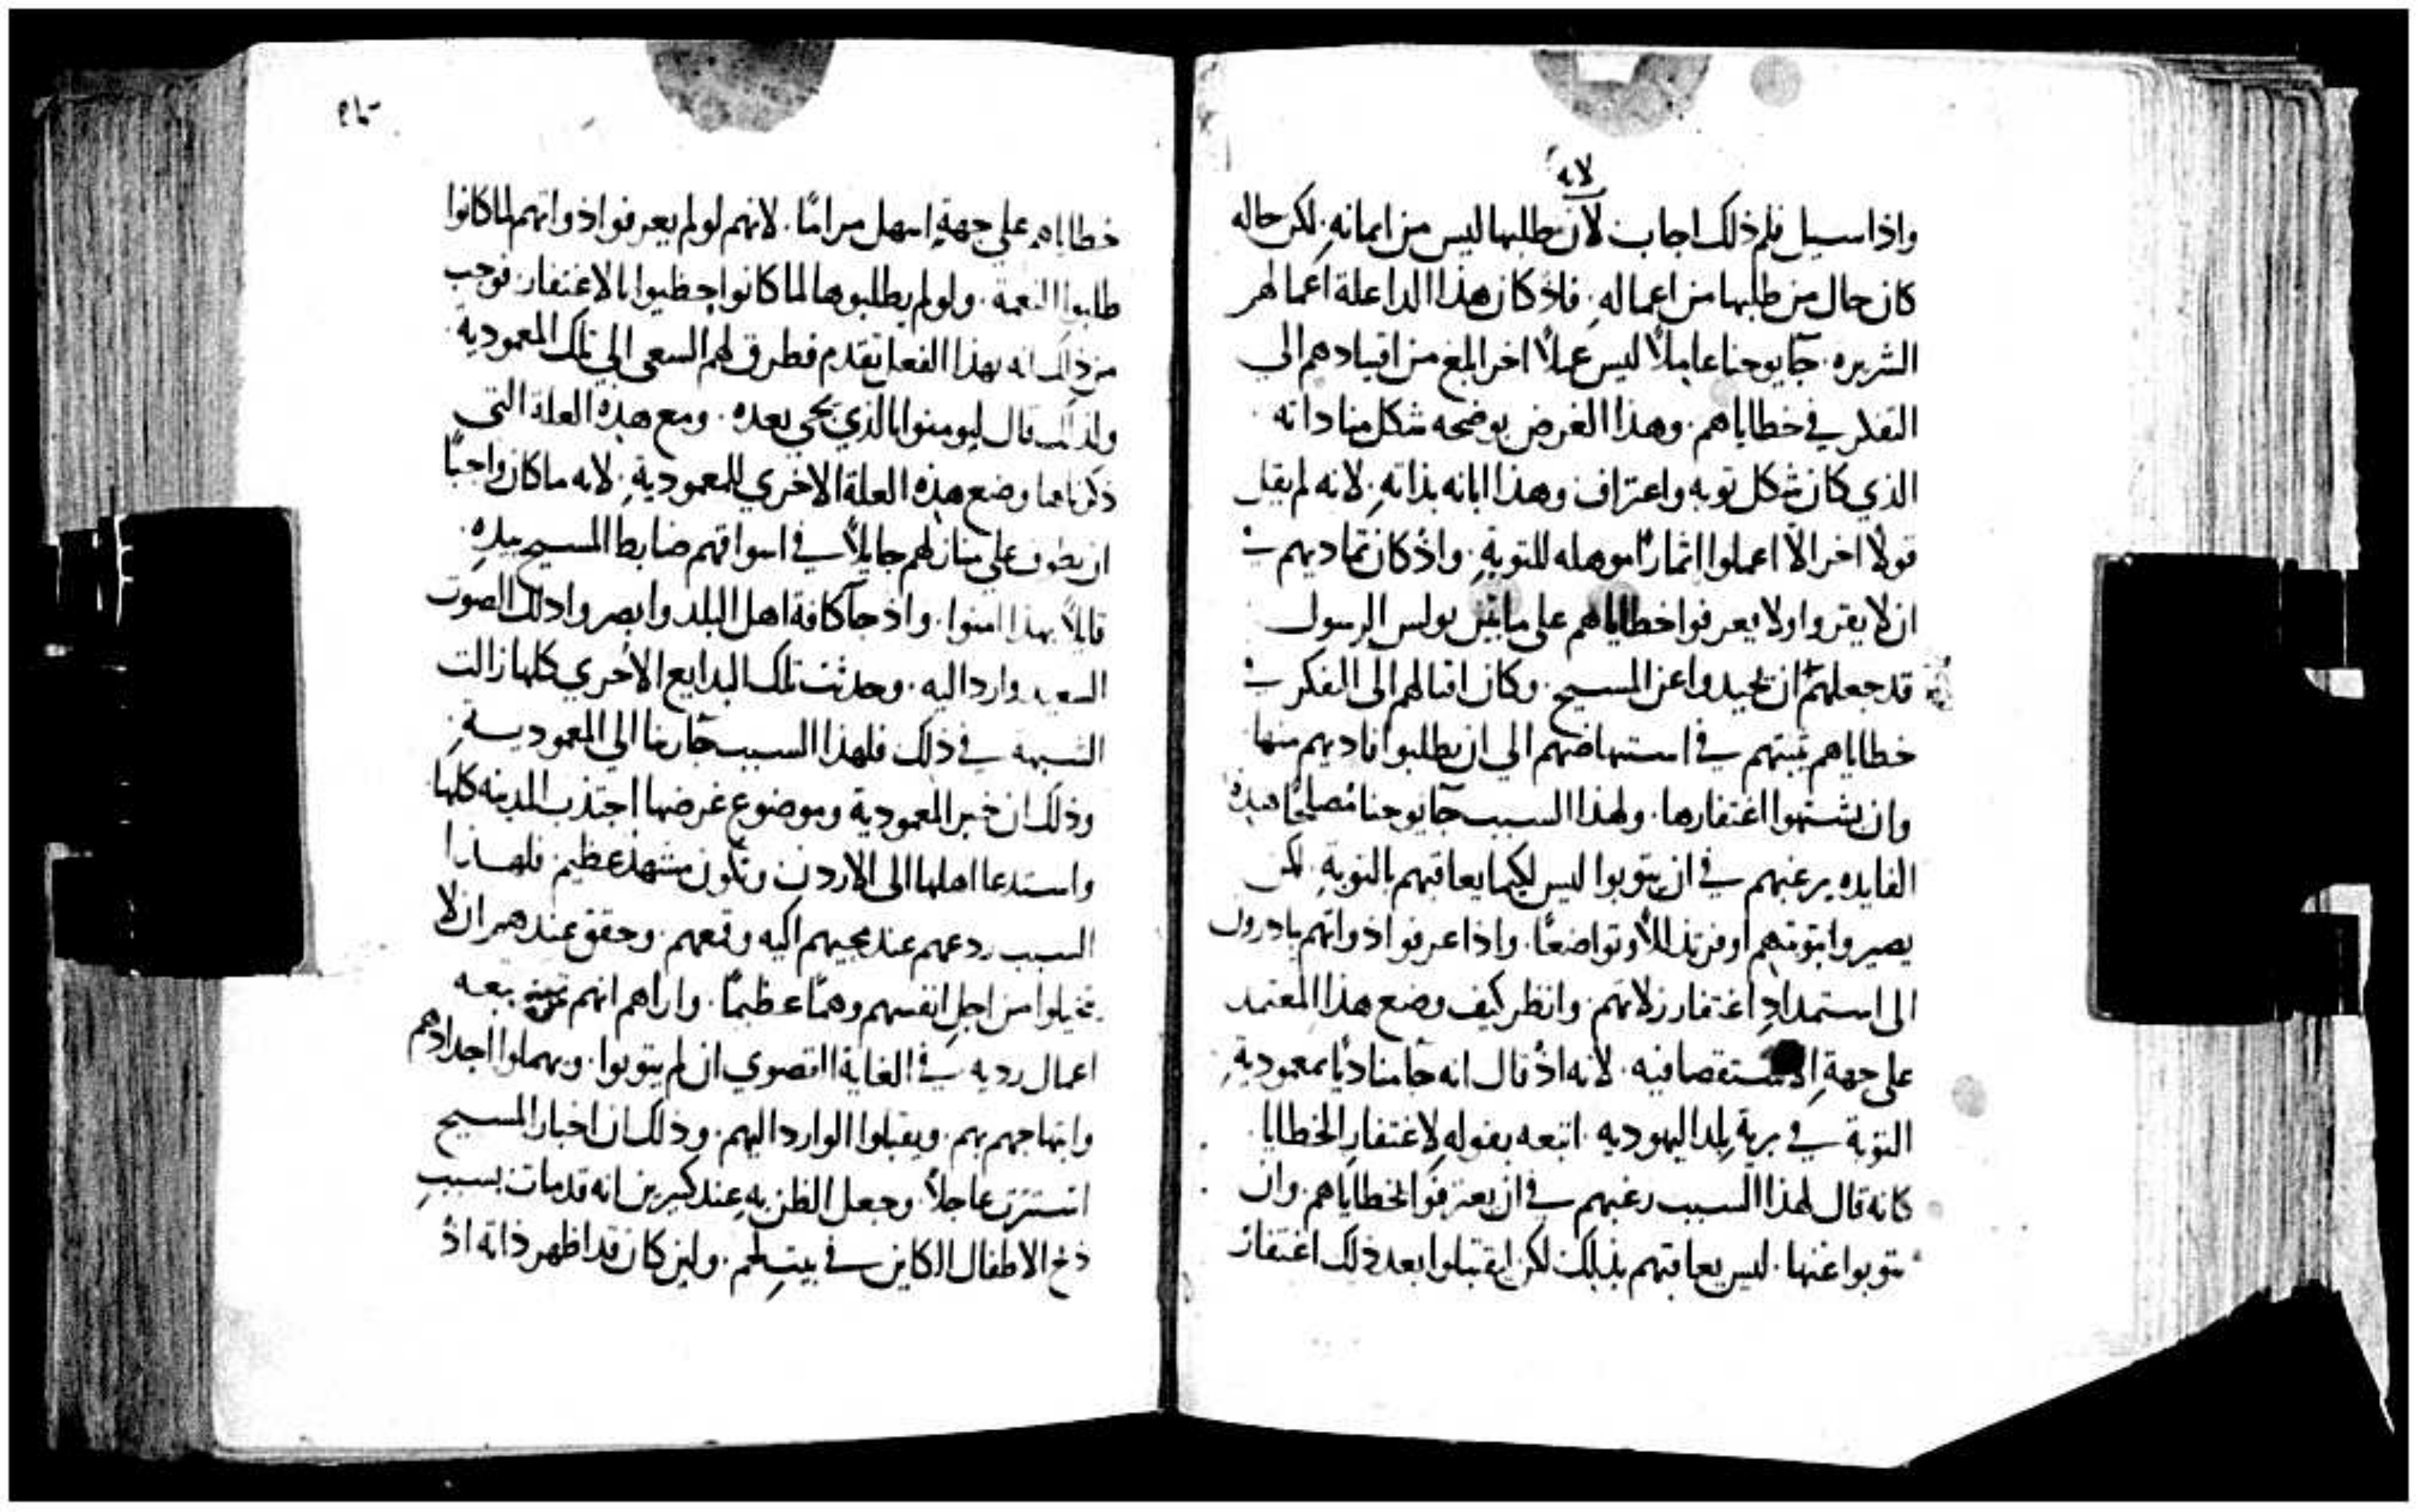 لانه
واذا سيل فلم ذلك اجاب لان طلبها ليس من ايمانه. لكن حاله
كان حال من طلبها من اعماله. فاذ كان هذا الداعلة اعمالهم
الشريره. جآ يوحنا عاملاً ليس عملاً اخر ابلغ من اقتيادهم الي
التفكر في خطاياهم. وهذا الغرض يوضحه شكل مناداته
الذي كان شكل توبه واعتراف وهذا ابانه بذاته. لانه لم يقل
قولاً اخر الا اعملوا اثمارًا موهله للتوبةِ. واذ كان تماديهم في
ان لا يقروا ولا يعرفوا خطاياهم على ما بين بولس الرسول
قد جعلهم ان يحيدوا عن المسيح. وكان اقبالهم الى الفكر في
خطاياهم يثبتهم في استنهاضهم الي ان يطلبوا فاديهم منها
وان يشتهوا اغتفارها. ولهذا السبب جآ يوحنا مصلحًا هذه
الفايده يرغبهم في ان يتوبوا ليس لكيما يعاقبهم بالتوبةِ. لكن
يصيروا بتوبتهم اوفر تذللاً وتواضعًا. واذا عرفوا ذواتهم يبادرون
الى استمدادِ اغتفار زلاتهم. وانظر كيف وضع هذا المعتمد
على جهةِ الاستقصا فيه. لانه اذ قال انه جا مناديًا بمعموديةِ
التوبة في بريةِ بلد اليهوديه. اتبعه بقوله لاغتفارِ الخطايا.
كانه قال لهذا السبب رغبهم في ان يعترفوا بخطاياهم. وان
يتوبوا عنها. ليس يعاقبهم بذلك لكن ليقتبلوا بعد ذلك اغتفار
خطاياهم على جهةٍ اسهل مرامًا. لانهم لو لم يعرفوا ذواتهم لما كانوا
طلبوا النعمة. ولو لم يطلبوها لما كانوا يحظيوا بالاغتفار. فوجب
من ذلك انه بهذا الفعل تقدم فطرق لهم السعى الي تلك المعمودية.
ولذلك قال ليومنوا بالذي يجي بعده. ومع هذه العلة التي
ذكرناها وضع هذه العلة الاخري للمعموديةِ. لانه ما كان واجبًا
ان يطوف على منازلهم جايلاً في اسواقهم ضابط المسيح بيدهِ.
قايلاً بهذا امنوا. واذ جآ كافة اهل البلد وابصروا ذلك الصوت
السعيد واردا اليه. وحدثت تلك البدايع الاخري كلها زالت
الشبهه في ذلك فلهذا السبب جآ ربنا الي المعموديةِ
وذلك ان خبر المعمودية وموضوع غرضها اجتذب المدينه كلها
واستدعا اهلها الى الاردن وتكون مشهد عظيم. فلهذا
السبب ردعهم عند مجيهم اليه وقمعهم. وحقق عندهم ان لا
يتخيلوا من اجل انفسهم وهمًا عظيمًا. واراهم انهم تبعه
اعمال رديه في الغاية القصوي ان لم يتوبوا. ويهملوا اجدادهم
وابتهاجهم بهم. ويقبلوا الوارد اليهم. وذلك ان اخبار المسيح
استترت عاجلاً. وجعل الظن به عند كثيرين انه قد مات بسببِ
ذبح الاطفال الكاين في بيت لحم. ولين كان قد اظهر ذاته اذ